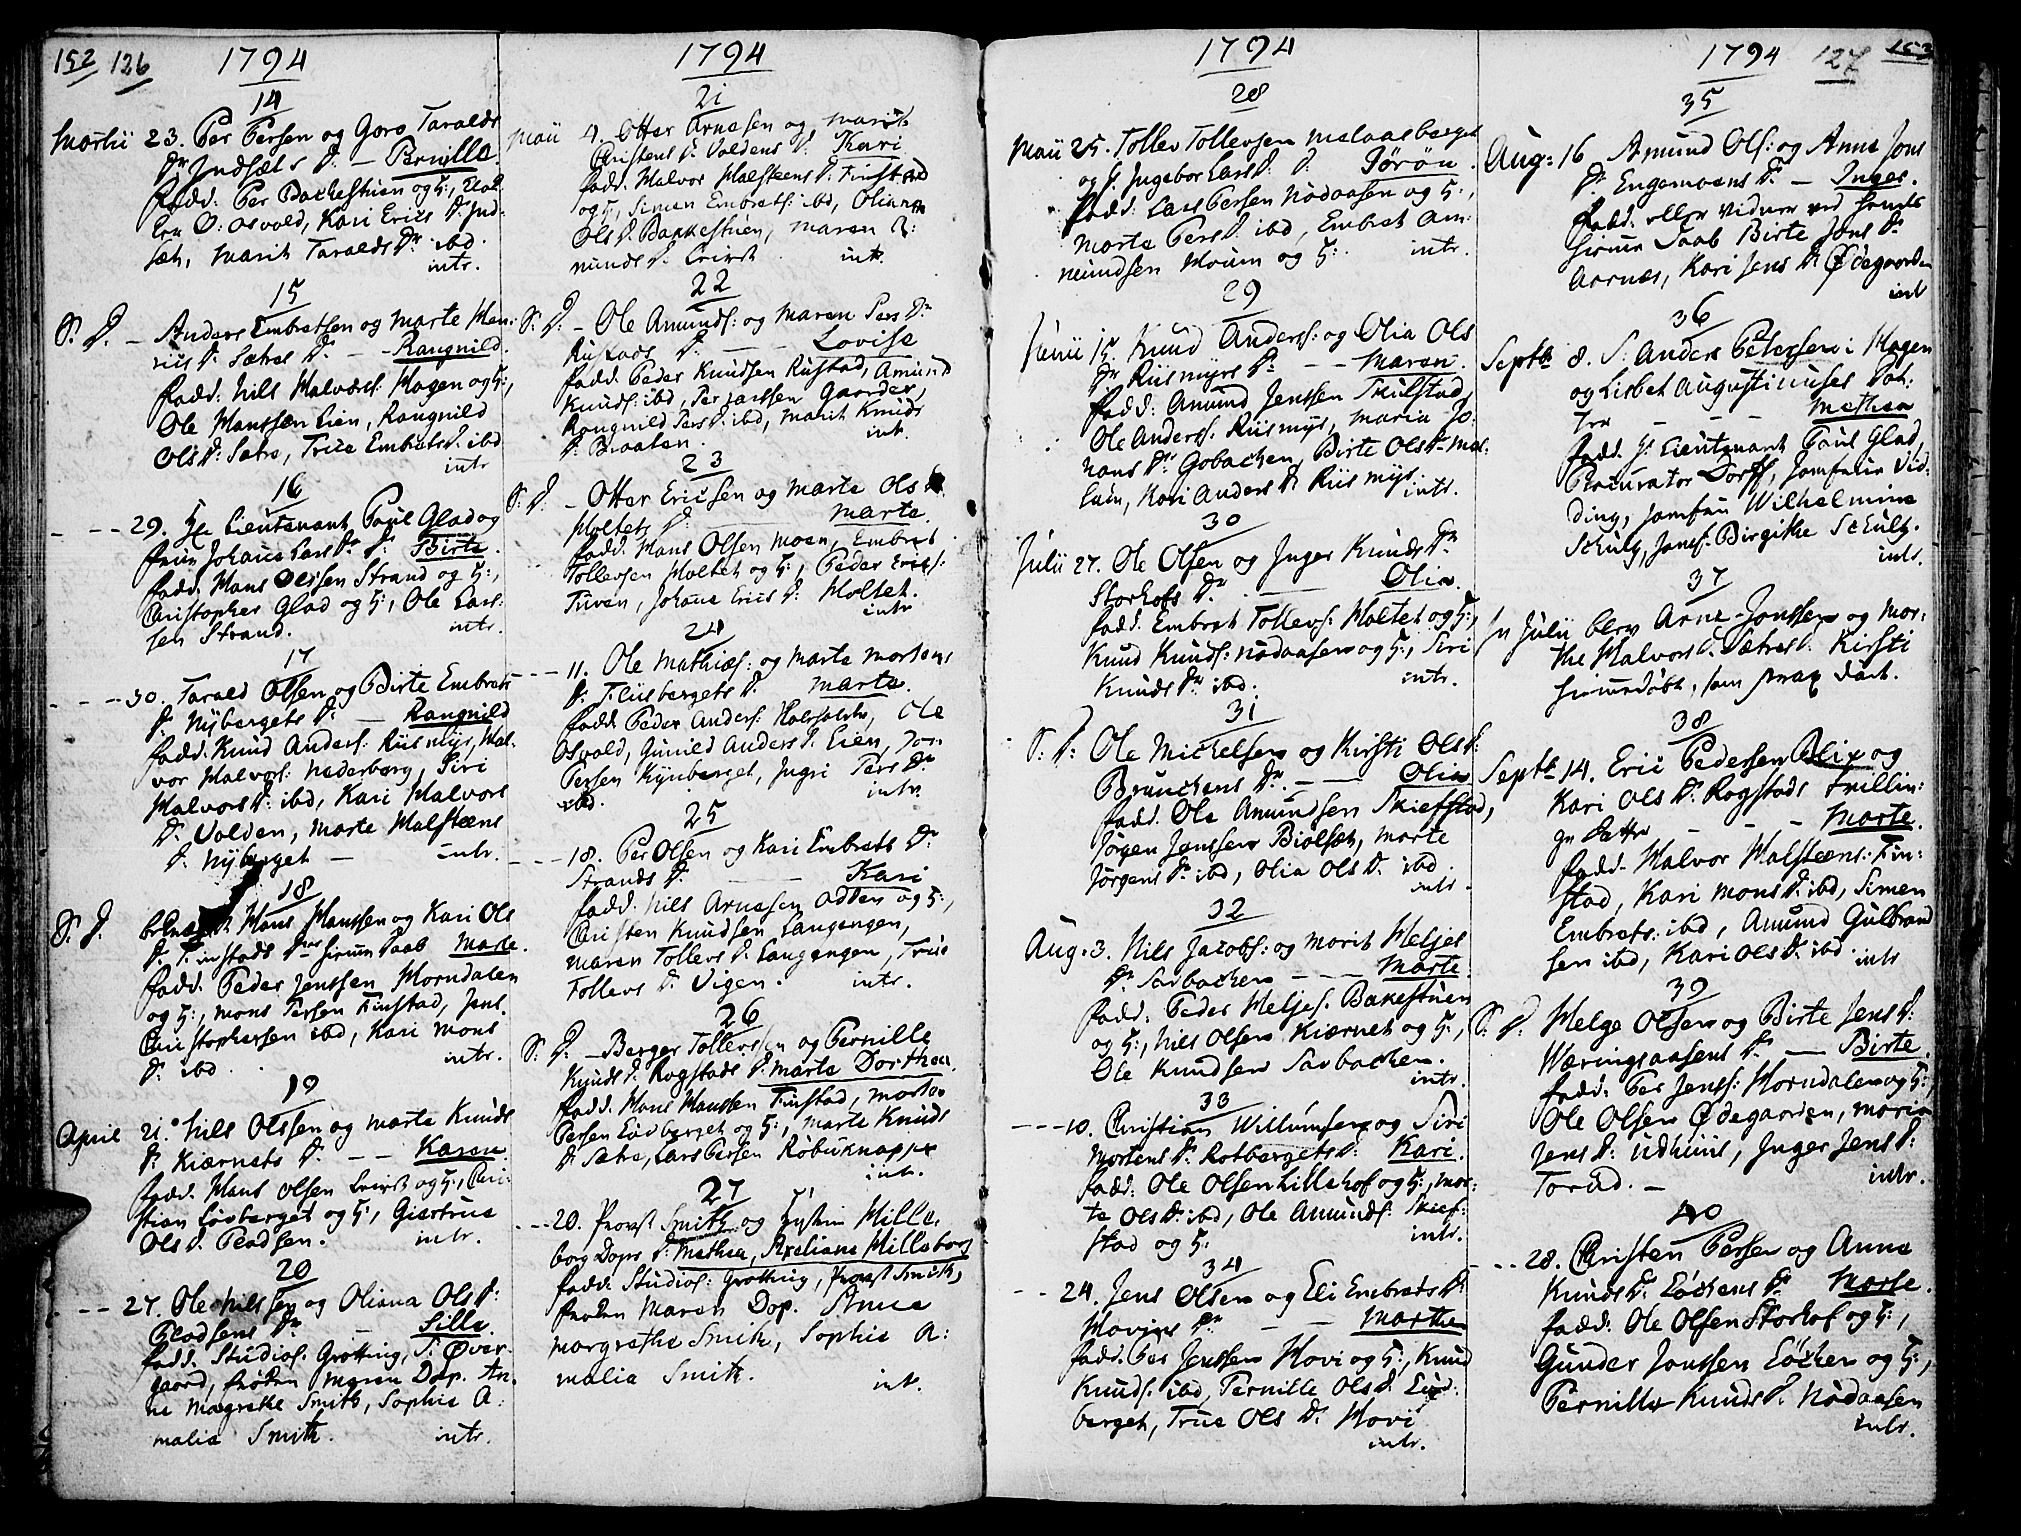 152 126 1794
14
Martii 23. Per Persen og Goro Taralds
Dr Indsæts D. — Pernille.
fadd. Per Backestuen og H:,
O: Osvold, Kari Erics D. Ind-
sæt, Marit Taralds Dr ibd.
intr.
15
S. D. — Anders Embretsen og Marte Hen-
rics D. Sætres D. — Rangnild.
fadd: Nils Halvors: Hagen og H:,
Ole Hanssen Lien, Rangnild
Ols D. Sætre, True Embrets D. ibd
intr
16
- - - 29. Hr Lieutenant Poul Glad og
fruu Johana Lars Dr D. Birte.
fadd. Hans Olssen Strand og H:,
Christopher Glad og H:, Ole Lars-
sen Strand. intr.
17
- - - 30. Tarald Olsen og Birte Embrets
D. Nybergets D. — Rangnild
fadd. Knud Anders: Riismyr, Hal-
vor Halvors: Nederberg, Siri
Halvors D. ibd, Kari Halvors
D. Volden, Marte Halsteens
D. Nyberget — intr.
18
S. D. Hans Hanssen og Kari Ols
D. Finstads D. hiem Daab Marte.
fadd. Peder Jenssen Horndalen
og H:, Mons Persen Finstad, Jens
Christophersen ibd, Kari Mons
D. ibd. intr.
19
April 21. Nils Olssen og Marte Knuds
D. Kiærnets D. - - Karen
fadd. Hans Olsen og H:, Chri-
stian Løvberget og H:, Giertrue
Ols D. Pladsen. intr.
20
- - - 27. Ole Nilssen og Oliana Ols D:
Pladsens Dr — Sille.
fadd. Studios: Grøtting, S. Øver-
gaard, frøken Maren Dop. An-
ne Margrethe Smith, Sophie A:
malia Smith. intr.
1794
21
Maii 4. Otter Arnesen og Marit
Christens D. Voldens D. Kari
fadd. Halvor Halsteens D. Finstad
og H:, Simen Embrets: ibd, Oliana
Ols D. Backestuen, Maren A:
munds D. intr.
22
S. D. — Ole Amunds: og Maren Pers Dr
Rustads D. — Lovise
fadd. Peder Knudsen Rustad, Amund
Knuds: ibd, Per Larssen Gaarder,
Rangnild Pers D. ibd, Marit Knuds
D. Braaten. intr.
23
S. D. — Otter Ericsen og Marte Ols D.
Moltets D. — Marte.
fadd. Hans Olsen Moen, Embret
Tollevsen Moltet og H:, Peder Erics:
Tuven, Johane Erics D. Moltet.
intr
24
- - - 11. Ole Mathias: og Marte Mortens
D. Flisbergets D. Marte.
fadd. Peder Anders: Ole
Osvold, Gunild Anders D. Lien, Jon
Persen Kynberget, Ingri Pers Dr
ibd. intr.
25
- - - 18. Per Olsen og Kari Embrets Dr
Strands D. — Kari
fadd. Nils Arnesen Odden og H:,
Christen Knudsen Langengen,
Maren Tollevs D. Langengen, True
Tollevs D. Vigen. intr.
26
S. D. — Berger Tollevsen og Pernille
Knuds D. Rogstads D. Marte Dorthea.
fadd. Hans Hanssen Finstad, Morten
Persen Løvberget og H:, Marte Knuds
D. Sætre, Lars Persen Robuknappe
intr.
27
- - - 20. Provst Smith og Hille-
borg Dops D. Mathea, Axeliane Hilleborg
fadd. Studios: Grøtting, Provst Smith,
frøken Maren Dop. Anne
Margrethe Smith, Sophie A:
malia Smith. intr.
1794
28
Maii 25. Tollev Tollevsen Melaasberget
og S. Ingebor Lars D. D. Jørøn.
fadd. Lars Persen Nodaasen og H:,
Marte Pers D. ibd, Embret Am-
mundsen Moum og H: intr.
29
Junii 15. Knud Anderss: og Olia Ols
Dr Riismyrs D. - - Maren.
fadd: Amund Jenssen Skulstad,
Ole Anders: Riismyr, Maria Jo-
hans Dr Gobacken, Birte Ols D.
Kari Anders D. Riismyr.
intr.
30
Julii 27. Ole Olsen og Inger Knuds Dr
Storhofs D. — Olia.
fadd. Embret Tollevs: Moltet og H:,
Knud Knuds: Nodaasen og H:, Siri
Knuds Dr ibd. intr.
31
S. D: Ole Michelsen og Kirsti Ols D:
Brunchens Dr. — Olia
fadd. Ole Amundsen Skiefstad,
Jørgen Jenssen Biølset, Marte
Jørgens D. ibd, Olia Ols D. ibd.
intr.
32
Aug. 3. Nils Jacobs: og Marit Heljes
Dr Sorbacken - - - Marte.
fadd. Peder Heljes: Bakestuen
og H:, Nils Olsen Kiærnet og H:,
Ole Knudsen Sorbacken.
intr.
33
- - - 10. Christian Willumsen og Siri
Mortens D. Rotbergets D. Kari.
fadd: Ole Olsen Lillehof og H:, Mar-
te Ols D: ibd, Ole Amunds: Skief-
stad og H: intr.
34
- - 24. Jens Olsen og Eli Embrets D.
Hovies Dr - - Marthe
fadd. Per Jenssen Hovi og H:, Knud
Knuds: ibd, Pernille Ols D.
berget, True Ols D. Hovi
intr.
1794 127 153
35
Aug: 16 Amund Ols: og Anne Jons
D. Engamoens D. — Inger.
fadd. eller vidner ved hendes
hiemme Daab Birte Jons D.
Aarnæs, Kari Jens D. Ødegaarden
intr
36
Septb. 8. S. Anders Petersen i Hagen
og Lisbet Augustinuses Dat-
ter - - Mathea
fadd. Hr Lieutenant Poul Glad,
Procurator Dorff, Jomfrue Vid-
ding, Jomfru Wilhelmine
Schultz, Jomf. Birgithe Schultz.
intr.
37
In Julii blev Arne Jonssen og Mar-
the Halvors D. Sætres D. Kirsti
hiemedøbt, som strax døde.
38
Septb. 14. Eric Pedersen Blix og
Kari Ols Dr Rogstads Trillin-
ge Datter - - - Marte.
fadd. Halvor Halsteens: Fin-
stad, Kari Mons D. ibd, Simen
Embrets: ibd, Amund Gulbrand
sen ibd, Kari Ols D. ibd intr
39
S. D. Helge Olsen og Birte Jens D:
Wæringsaasens D. — Birte.
fadd: Per Jenss: Horndalen og H:,
Ole Olsen Ødegaarden, Maria
Jens D. Udhuus, Inger Jens D:
Torud. — intr.
40
- - - 28. Christen Persen og Anne
Knuds D. Løckens D. Marte.
fadd: Ole Olsen Storhof og H:,
Gunder Jonssen Løcken og H:,
Pernille Knuds D. Nodaasen
intr.